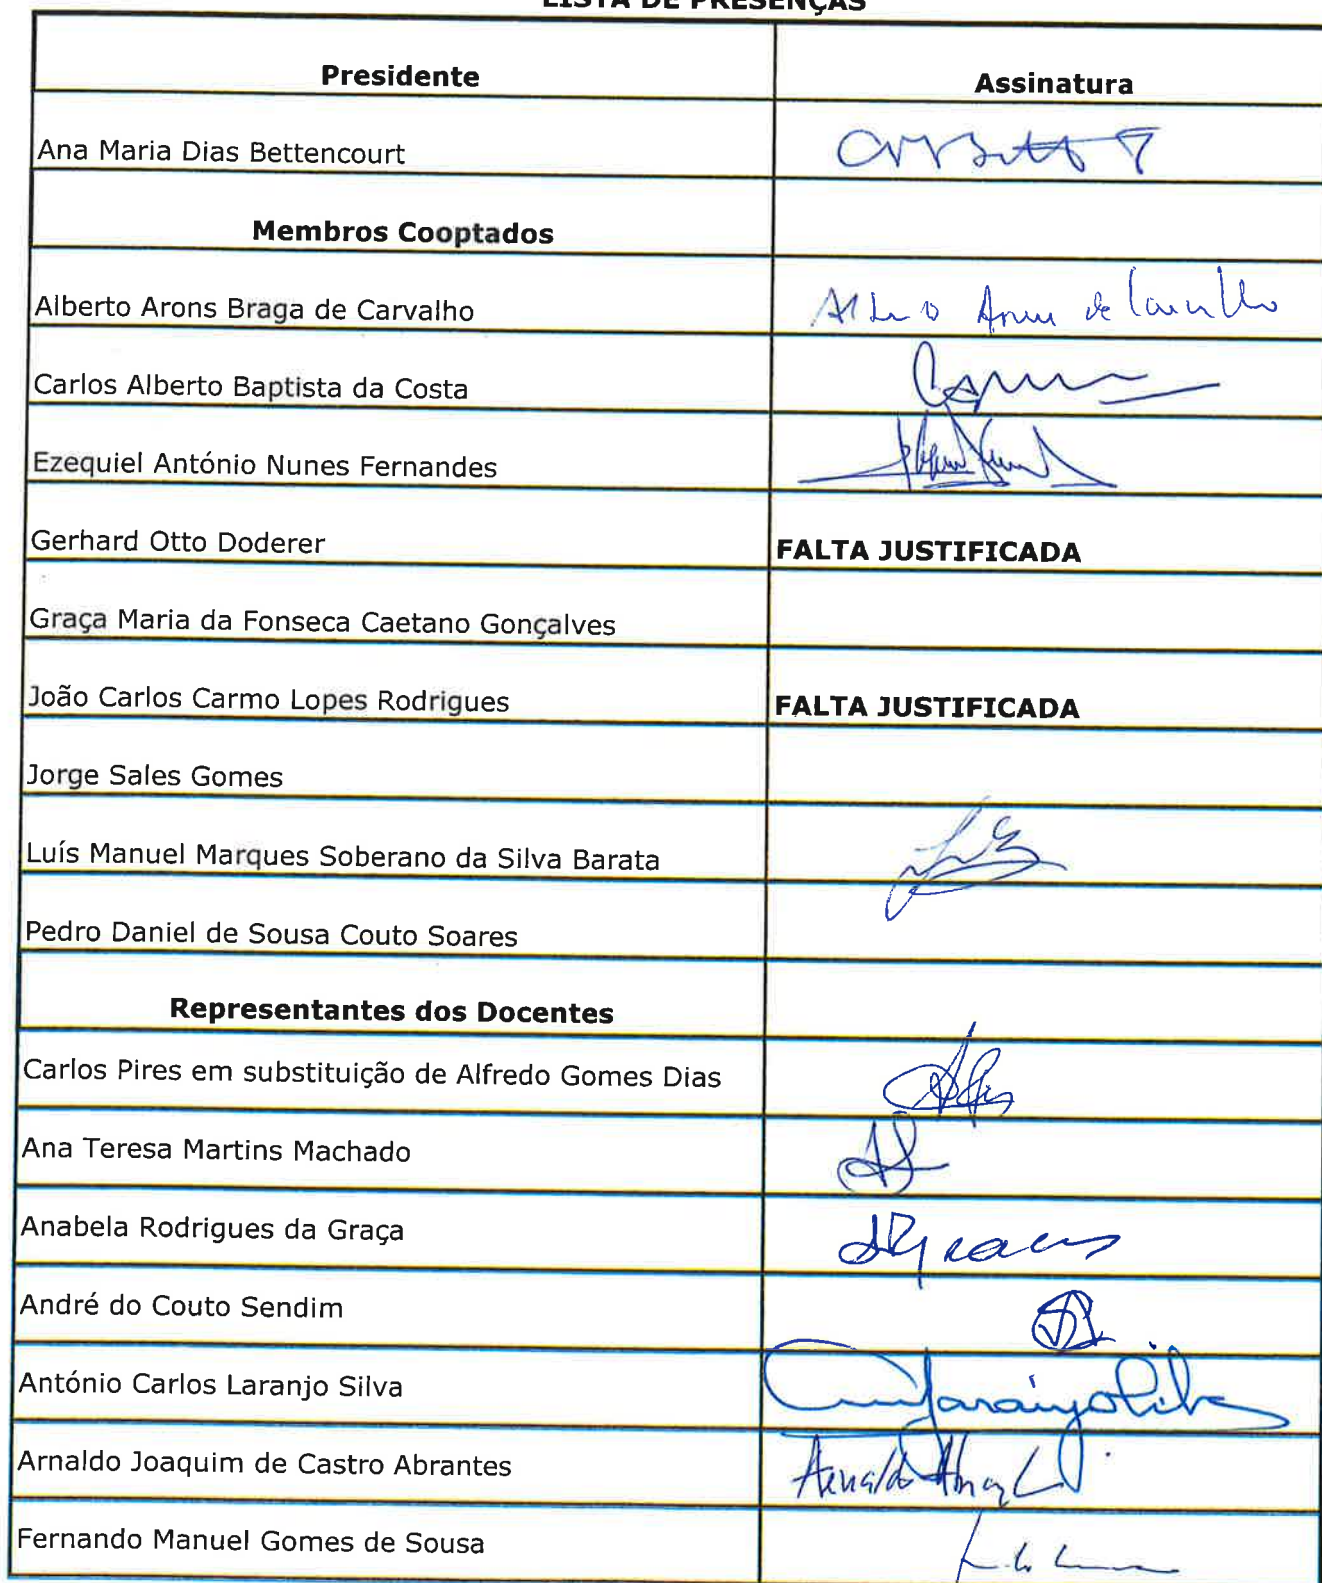 LISTA DE PRESENÇAS
Presidente Assinatura
Ana Maria Dias Bettencourt
Membros Cooptados
Alberto Arons Braga de Carvalho
Carlos Alberto Baptista da Costa
Ezequiel António Nunes Fernandes
Gerhard Otto Doderer FALTA JUSTIFICADA
Graça Maria da Fonseca Caetano Gonçalves
João Carlos Carmo Lopes Rodrigues FALTA JUSTIFICADA
Jorge Sales Gomes
Luís Manuel Marques Soberano da Silva Barata
Pedro Daniel de Sousa Couto Soares
Representantes dos Docentes
Carlos Pires em substituição de Alfredo Gomes Dias
Ana Teresa Martins Machado
Anabela Rodrigues da Graça
André do Couto Sendim
António Carlos Laranjo Silva
Arnaldo Joaquim de Castro Abrantes Arnaldo
Fernando Manuel Gomes de Sousa